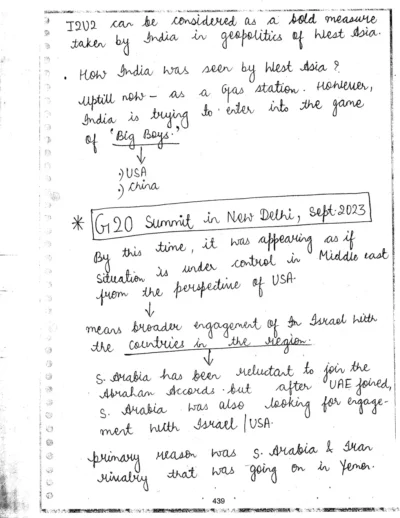 I2U2 can be considered as a bold measure
taken by India in geopolitics of West Asia.
• How India was seen by West Asia ?
Uptill now - as a Gas station. However,
India is trying to enter into the game
of "Big Boys."
↓
·) USA
·) China
* G20 Summit in New Delhi, Sept 2023
By this time, it was appearing as if
situation is under control in Middle east
from the perspective of USA.
↓
means broader engagement of In Israel with
the countries in the region.
↓
S. Arabia has been reluctant to join the
Abraham Accords but after UAE joined,
S. Arabia was also looking for engage-
ment with Israel / USA.
primary reason was S. Arabia & Iran
rivalry that was going on in Yemen.
439